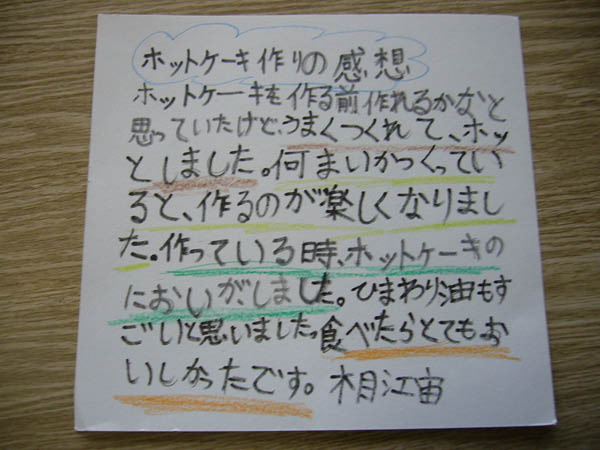 ホットケーキ作りの感想
ホットケーキを作る前作れるかなと
思っていたけど、うまくつくれて、ホッ
としました。何まいかつくってい
ると、作るのが楽しくなりまし
た。作っている時、ホットケーキの
においがしました。ひまわり油もす
ごいと思いました。食べたらとてもお
いしかったです。 木月江宙